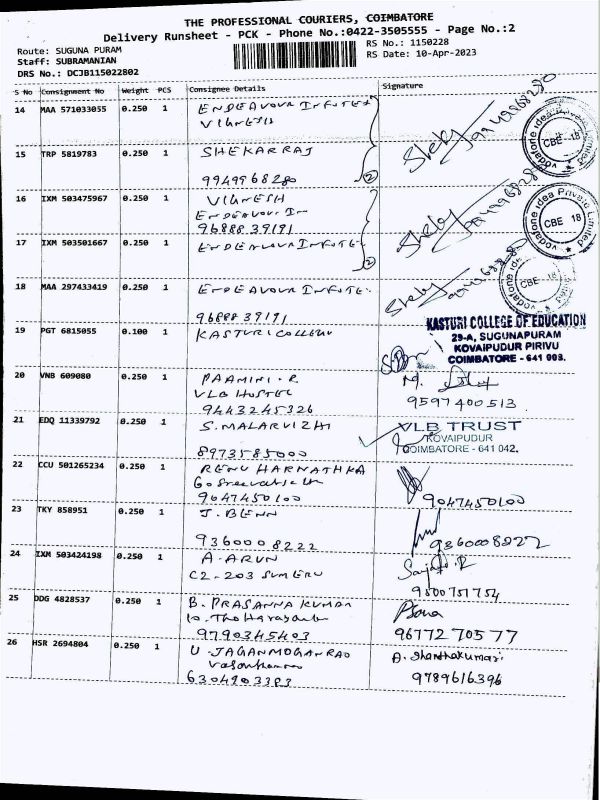 THE PROFESSIONAL COURIERS, COIMBATORE
Delivery Runsheet - PCK - Phone No.:0422-3505555 - Page No.:2
Route: SUGUNA PURAM
Staff: SUBRAMANIAN
DRS No.: DCJB115022802
RS No.: 1150228
RS Date: 10-Apr-2023
S No Consignment No Weight PCS Consignee Details Signature
14 MAA 571033055 0.250 1 ENDEAVOUR INFOTEX
VIGNESH
Sheky 9949968280
vodafone idea Private Limited
CBE 18
15 TRP 5819783 0.250 1 SHEKARRAJ
9949968280
2
16 IXM 503475967 0.250 1 VIGNESH
ENDEAVOUR IN
96888 39191
Sheky 9949968280
vodafone idea Private Limited
CBE 18
17 IXM 503501667 0.250 1 ENDEAVOUR INFOTE
2
18 MAA 297433419 0.250 1 ENDEAVOUR INFOTE
96888 39191
Sheky
CBE 18
19 PGT 6815055 0.100 1 KASTURI COLLEGE
KASTURI COLLEGE OF EDUCATION
29-A, SUGUNAPURAM
KOVAIPUDUR PIRIVU
COIMBATORE - 641 008.
20 VNB 609080 0.250 1 PAAMINI. R
VLB HOSTEL
9443245326
M.
9597400513
21 EDQ 11339792 0.250 1 S. MALARVIZHI
8973585000
VLB TRUST
KOVAIPUDUR
COIMBATORE - 641 042.
22 CCU 501265234 0.250 1 RENU HARNATHKA
9047450100
9047450100
23 TKY 858951 0.250 1 J. BENN
9360008222
9360008222
24 IXM 503424198 0.250 1 A. ARUN
C2-203 SUMERU
9500751754
25 DDG 4828537 0.250 1 B. PRASANNA KUMAR
9790345403
96772 70577
26 HSR 2694804 0.250 1 U JAGANMOGANRAO
6304903383
A. Shanthakumari
9789616396